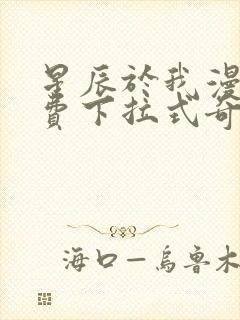 星辰於我漫
費下拉式奇
海口—烏魯木